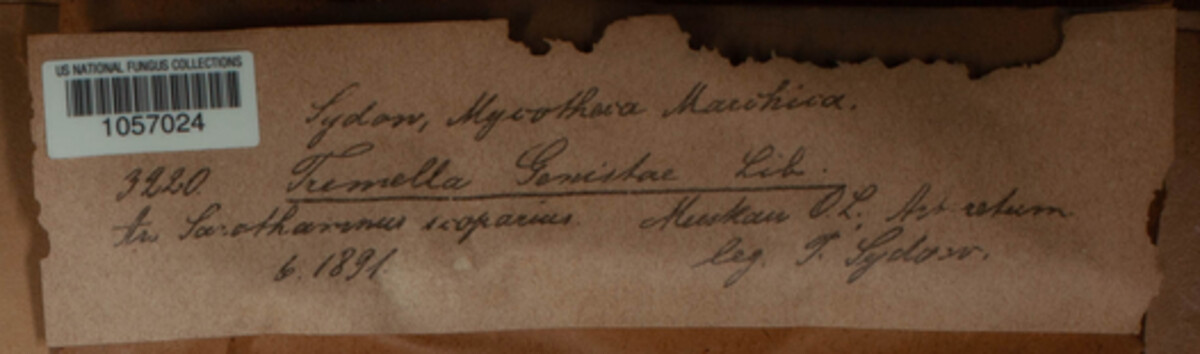 US NATIONAL FUNGUS COLLECTIONS
1057024
Sydow, Mycotheca Marchica.
3220. Tremella Genistae Lib.
An Sarothamnus scoparius. Muskau O.L. Arboretum
6. 1891. leg. P. Sydow.